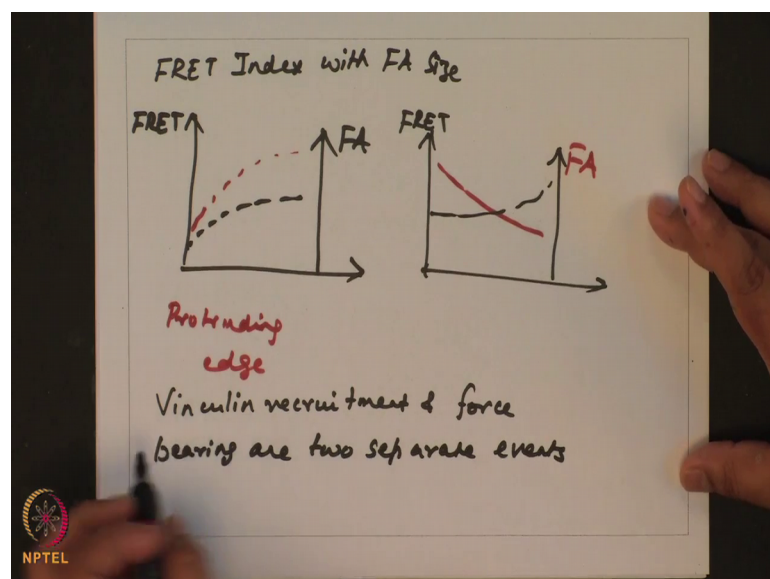 FRET Index with FA Size
FRET
FA
FRET
FA
Protruding
edge
Vinculin recruitment & force
bearing are two separate events
NPTEL